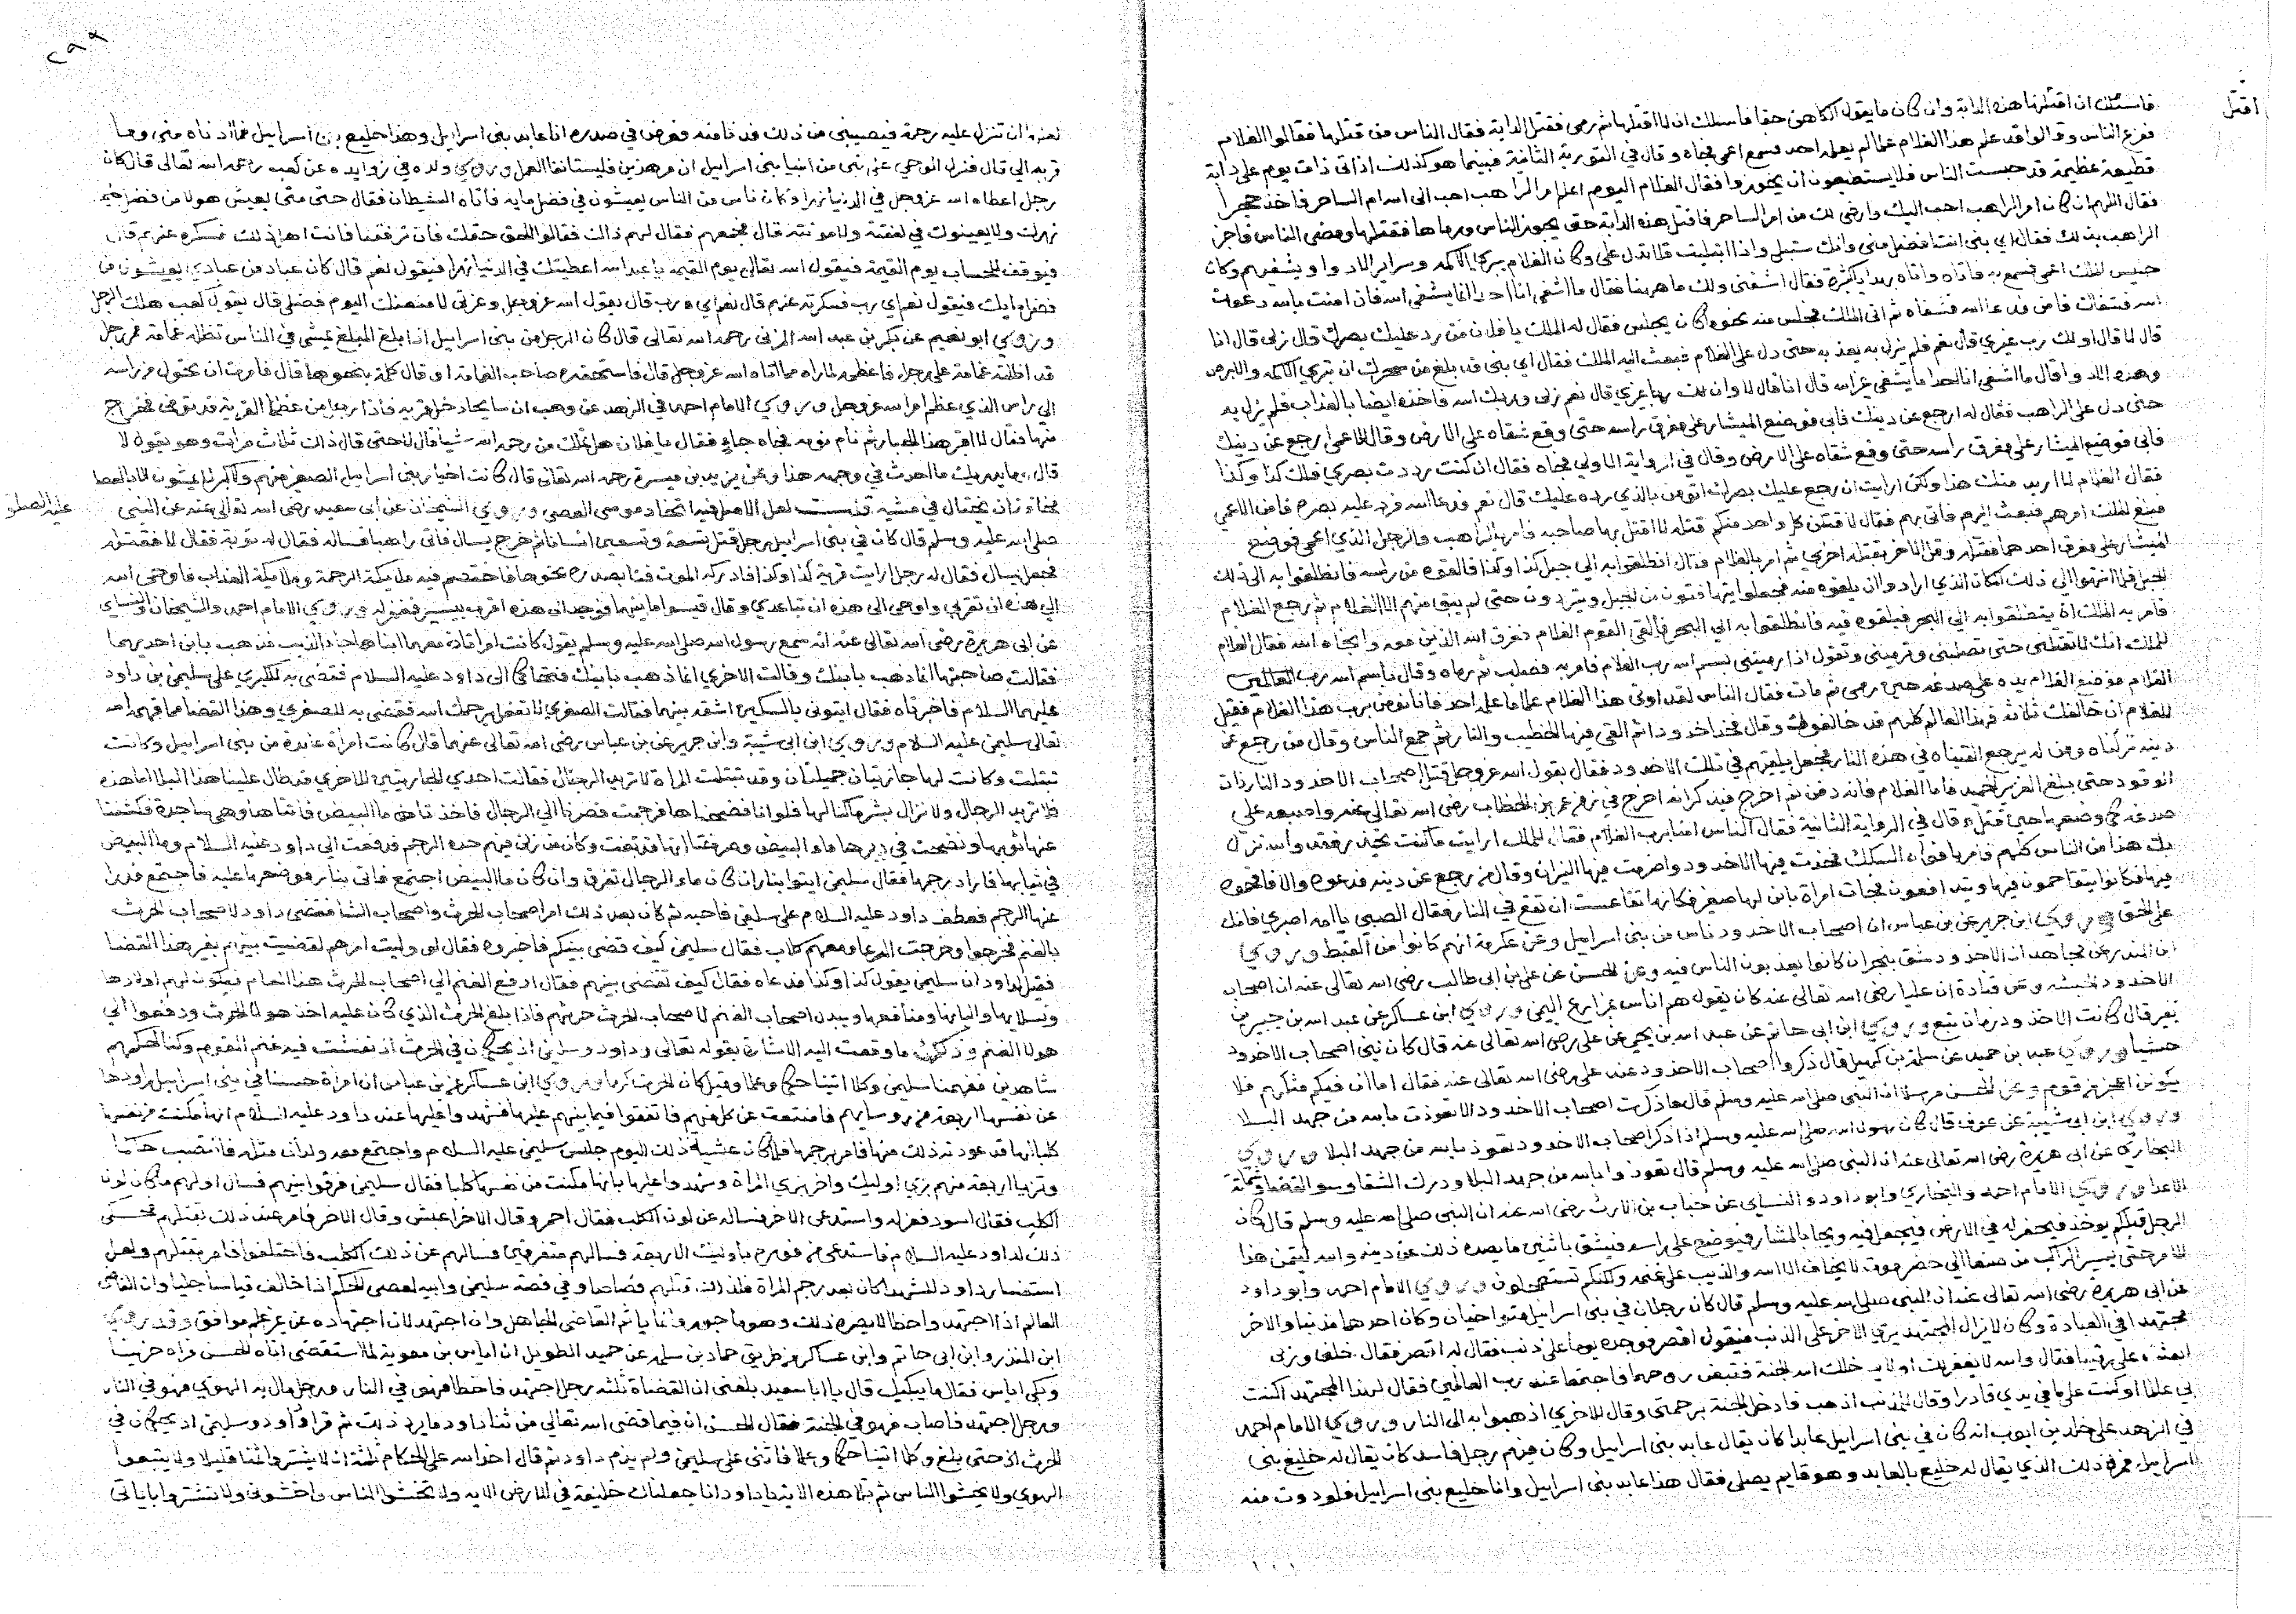 اقتل
فاسئلك ان اقتلها هذه الدابة وان كان ما يقول الكاهن حقا فاسئلك ان لا اقتلها ثم رمى فقتل الدابة فقال الناس من قتلها فقالوا الغلام
ففزع الناس وقالوا قد علم هذا الغلام علما لم يعلمه احد فسمع اعمى فجاه وقال في الثانية فبينما هو كذلك اذ اتى ذات يوم على دابة
عظيمة قد حبست الناس فلا يستطيعون ان يجوزوا فقال الغلام اليوم اعلم امر الراهب احب الى الله ام الساحر فاخذ حجرا
فقال اللهم ان كان امر الراهب احب اليك وارضى لك من امر الساحر فاقتل هذه الدابة حتى يجوز الناس ورماها فقتلها ومضى الناس فاخبر
الراهب بذلك فقال اي بنى انت افضل منى وانك ستبلى واذا ابتليت فلا تدل على وكان الغلام يبرى الاكمه وساير الادوا ويشفيهم وكان
جليس للملك اعمى فسمع به فاتاه واتاه بهدايا كثيرة فقال اشفنى ولك ما ههنا فقال ما اشفى انا احدا انما يشفى الله فان امنت بالله دعوت
الله فشفاك فامن فدعا الله فشفاه ثم اتى الملك فجلس منه نحو ما كان يجلس فقال له الملك يا فلان من رد عليك بصرك قال ربى قال انا
قال لا قال اولك رب غيرى قال نعم فلم يزل به يعذبه حتى دل على الغلام فبعث اليه الملك فقال اي بنى قد بلغ من سحرك ان تبرى الاكمه والابرص
وهذه الادوا قال ما اشفى انا احدا ما يشفى غير الله قال انا قال لا وان لك ربا غيرى قال نعم ربى وربك الله فاخذه ايضا بالعذاب فلم يزل به
حتى دل على الراهب فقال له ارجع عن دينك فابى فوضع الميشار على مفرق راسه حتى وقع شقاه على الارض وقال للاعمى ارجع عن دينك
فابى فوضع الميشار على مفرق راسه حتى وقع شقاه على الارض وقال في الرواية الاولى فجاه فقال ان كنت رددت بصري فلك كذا وكذا
فقال الغلام لا اريد منك هذا ولكن ارايت ان رجع عليك بصرك اتومن بالذي رده عليك قال نعم فدعا الله فرد عليه بصره فامن الاعمى
فبلغ الملك امرهم فبعث اليهم فاتى بهم فقال لاقتلن كل واحد منكم قتلة لا اقتل بها صاحبه فامر بالراهب والرجل الذي اعمى فوضع
المنشار على مفرق احدهما فقتله وقتل الاخر بقتلة اخري ثم امر بالغلام فقال انطلقوا به الي جبل كذا وكذا فالقوه من راسه فانطلقوا به الى ذلك
الجبل فلما انتهوا الي ذلك المكان الذي اراد وان يلقوه منه فجعلوا يتهافتون من الجبل ويتردون حتى لم يبق منهم الا الغلام ثم رجع الغلام
فامر به الملك ان ينطلقوا به الي البحر فيلقوه فيه فانطلقوا به الى البحر فغرق الله الذين معه وانجاه الله فقال الغلام
للملك انك لا تقتلنى حتى تصلبنى وترمينى وتقول اذا رميتنى بسم الله رب الغلام فامر به فصلب ثم رماه وقال باسم الله رب الغلام
فوضع الغلام يده على صدغه حين رمى ثم مات فقال الناس لقد اوتى هذا الغلام علما ما علمه احد فانا نومن برب هذا الغلام فقيل
للغلام ان خالفك ثلاثة فهذا العالم كلهم قد خالفوك وقال فخد اخدودا ثم القى فيها الحطب والنار ثم جمع الناس وقال من رجع عن
دينه تركناه ومن لم يرجع القيناه في هذه النار فجعل يلقيهم في تلك الاخدود فقال يقول الله عز وجل قتل اصحاب الاخدود النار ذات
الوقود حتى بلغ العزيز الحميد فاما الغلام فانه دفن ثم اخرج فيذكر انه اخرج في زمن عمر بن الخطاب رضى الله تعالى عنه واصبعه على
صدغه كما وضعها حين قتل وقال في الرواية الثانية فقال الناس امنا برب الغلام فقال للملك ارايت ما كنت تحذر فقد والله نزل
بك هذا من الناس كلهم فامر بافواه السكك فخدت فيها الاخدود واضرمت فيها النيران وقال من رجع عن دينه فدعوه والا فاقحموه
فيها فكانوا يتقاحمون فيها ويتدافعون فجات امراة بابن لها صغير فكانها تقاعست ان تقع في النار فقال الصبي يا امه اصبري فانك
على الحق وروى ابن جرير عن بن عباس ان اصحاب الاخدود ناس من بنى اسرائيل وعن عكرمة انهم كانوا من القبط وروي
ابن المنذر عن مجاهد ان الاخدود شق بنجران كانوا يعذبون الناس فيه وعن الحسن عن على بن ابى طالب رضى الله تعالى عنه ان اصحاب
الاخدود الحبشة وعن قتادة ان عليا رضى الله تعالى عنه كان يقول هم اناس بمزارع اليمن وروي ابن عساكر عن عبد الله بن جبير بن
نفير قال كانت الاخدود زمان تبع وروي ابن ابى حاتم عن عبد الله بن يحيى عن على رضى الله تعالى عنه قال كان نبى اصحاب الاخدود
حبشيا وروي عبد بن حميد عن سلمة بن كهيل قال ذكروا اصحاب الاخدود عند على رضى الله تعالى عنه فقال اما ان فيكم مثلهم فلا
يكونن اعجز من قوم وعن الحسن مرسلا ان النبى صلى الله عليه وسلم قال ما ذكرت اصحاب الاخدود الا تعوذت بالله من جهد البلا
وروي ابن ابى شيبة عن عوف قال كان رسول الله صلى الله عليه وسلم اذا ذكر اصحاب الاخدود تعوذ بالله من جهد البلا وروى
البخاري عن ابى هريرة رضى الله تعالى عنه ان النبى صلى الله عليه وسلم قال تعوذوا بالله من جهد البلا ودرك الشقا وسو القضا وشماتة
الاعدا وروي الامام احمد والبخاري وابو داود والنساى عن خباب بن الارت رضى الله عنه ان النبى صلى الله عليه وسلم قال كان
الرجل قبلكم يوخذ فيحفر له في الارض فيجعل فيه ويجا بالمشار فيوضع على راسه فيشق باثنين ما يصده ذلك عن دينه والله ليتمن هذا
الامر حتى يسير الراكب من صنعا الى حضرموت لا يخاف الا الله والذيب على غنمه ولكنكم تستعجلون وروي الامام احمد وابو داود
عن ابى هريرة رضى الله تعالى عنه ان النبى صلى الله عليه وسلم قال كان رجلان في بنى اسرائيل متواخيان وكان احدهما مذنبا والاخر
مجتهدا في العبادة وكان لا يزال المجتهد يرى الاخر على الذنب فيقول اقصر فوجده يوما على ذنب فقال له اقصر فقال خلنى وربى
ابعثت على رقيبا فقال والله لا يغفر الله لك او لا يدخلك الله الجنة فقبض روحهما فاجتمعا عند رب العالمين فقال لهذا المجتهد اكنت
بى عالما او كنت على ما في يدي قادرا وقال للمذنب اذهب فادخل الجنة برحمتى وقال للاخري اذهبوا به الى النار وروي الامام احمد
في الزهد على خالد بن ايوب انه كان في بنى اسرائيل عابدا كان يقال عابد بنى اسرائيل وكان فيهم رجل فاسد كان يقال له خليع بنى
اسرائيل فمر ذلك الذي يقال له خليع بالعابد وهو قايم يصلى فقال هذا عابد بنى اسرائيل وانا خليع بنى اسرائيل فلو دنوت منه
٢٩٩
لعله ان تنزل عليه رحمة فيصيبنى من ذلك فدنا منه فعرض في صدره انا عابد بنى اسرائيل وهذا خليع بنى اسرائيل فما ادناه منى وما
قربه الي قال فنزل الوحي على نبى من انبيا بنى اسرائيل ان مر هذين فليستانفا العمل وروي ولده في زوايده عن كعب رحمه الله تعالى قال كان
رجل اعطاه الله عز وجل في الدنيا نهرا وكان ناس من الناس يعيشون في فضل مايه فاتاه الشيطان فقال حتى متى يعيش هولا من فضل
نهرك ولا يعينوك في نفقة ولا مونة قال فجمعهم فقال لهم ذلك فقالوا
فيوقف للحساب يوم القيمة فيقول الله تعالى يوم القيمة يا عبد الله اعطيتك في الدنيا نهرا فيقول نعم قال كان عباد من عبادي يعيشون من
فضل مايك فيقول نعم اي رب فسكرته عنهم قال نعم اي رب قال يقول الله عز وجل وعزتى لامنعنك اليوم فضلى قال يقول كعب هلك الرجل
وروي ابو نعيم عن بكر بن عبد الله المزنى رحمه الله تعالى قال كان الرجل من بنى اسرائيل اذا بلغ المبلغ فمشى في الناس تظله غمامة فمر رجل
قد اظلته غمامة على رجل فاعظمه لما راه مما اتاه الله عز وجل قال فاستحقره صاحب الغمامة او قال كلمة نحوها قال فامرت ان تحول من راسه
الى راس الذي عظم امر الله عز وجل وروي الامام احمد في الزهد عن وهب
قال وما يدريك ما احدث في وجهه هذا وعن يزيد بن ميسرة رحمه الله تعالى قال كانت احبار بنى اسرائيل الصغير منهم والكبير لا يمشون الا بالعصا
مخافة ان يختال في مشيه قلت لعل الاصل فيه اتخاذ موسى العصى وروي الشيخان عن ابى سعيد رضى الله تعالى عنه عن النبى
عليه الصلو
صلى الله عليه وسلم قال كان في بنى اسرائيل رجل قتل تسعة وتسعين انسانا ثم خرج يسال فاتى راهبا فساله فقال له توبة فقال لا فقتله
فجعل يسال فقال له رجل ارايت قرية كذا وكذا فادركه الموت فنا بصدره نحوها فاختصم فيه ملايكة الرحمة وملايكة العذاب فاوحى الله
الى هذه ان تقربى واوحى الى هذه ان تباعدي وقال قيسوا ما بينهما فوجد الى هذه اقرب بيسير فغفر له وروي الامام احمد والشيخان والنساى
عن ابى هريرة رضى الله تعالى عنه انه سمع رسول الله صلى الله عليه وسلم يقول كانت امراتان معهما ابناهما جا الذيب فذهب بابن احديهما
فقالت صاحبتها انما ذهب بابنك وقالت الاخري انما ذهب بابنك فتحاكما الى داود عليه السلام فقضى به للكبري على سليمن بن داود
عليهما السلام فاخبرتاه فقال ايتونى بالسكين اشقه بينهما فقالت الصغري لا تفعل يرحمك الله فقضى به للصغري وهذا القضا مما فهمه الله
تعالى سليمن عليه السلام وروي ابن ابى شيبة وابن جرير عن بن عباس رضى الله تعالى عنهما قال كانت امراة عابدة من بنى اسرائيل وكانت
تبتلت وكانت لها جاريتان جميلتان وقد تبتلت المراة لا تريد الرجال فقالت احدي الجاريتين للاخري قد طال علينا هذا البلا اما هذه
فلا تريد الرجال ولا نزال بشر ما كنا لها فلو انا فضحناها فرجمت فصرنا الى الرجال فاخذتا من ما البيض فاتتاها وهى ساجدة فكشفتا
عنها ثوبها ونضحت في دبرها ماء البيض وصرختا انها قد بغت وكان من زنى فيهم حده الرجم فدفعت الى داود عليه السلام وما البيض
في ثيابها فاراد رجمها فقال سليمن ايتوا بنار ان كان ماء الرجال تفرق وان كان ما البيض اجتمع فاتى بنار فوضعها عليه فاجتمع فدرا
عنها الرجم فعطف داود عليه السلام على سليمن فاحبه ثم كان بعد ذلك امر اصحاب الحرث واصحاب الشا فقضى داود لاصحاب الحرث
بالغنم فخرجوا وخرجت الرعا ومعهم كلاب فقال سليمن كيف قضى بينكم فاخبروه فقال لو وليت امرهم لقضيت بينهم بغير هذا القضا
فقيل لداود ان سليمن يقول كذا وكذا فدعاه فقال كيف تقضى بينهم فقال ادفع الغنم الى اصحاب الحرث هذا العام فيكون لهم اولادها
وسلاها والبانها ومنافعها ويبذر اصحاب الغنم لاصحاب الحرث حرثهم فاذا بلغ الحرث الذي كان عليه اخذ هولا الحرث ودفعوا الى
هولا الغنم وذكرت ما وقعت اليه الاشارة بقوله تعالى وداود وسليمن اذ يحكمان في الحرث اذ نفشت فيه غنم القوم وكنا لحكمهم
شاهدين ففهمناها سليمن وكلا اتينا حكما وعلما وقيل كان الحرث كرما وروي ابن عساكر عن بن عباس ان امراة حسنا في بنى اسرائيل راودها
عن نفسها اربعة من روسايهم فامتنعت عن كل منهم فاتفقوا فيما بينهم عليها فشهدوا عليها عند داود عليه السلام انها مكنت من نفسها
كلبا لها قد عودته ذلك منها فامر برجمها فلما كان عشية ذلك اليوم جلس سليمن عليه السلام واجتمع معه ولدان مثله فانتصب حاكما
وتزيا اربعة منهم بزي اوليك واخر بزي المراة وشهدوا عليها بانها مكنت من نفسها كلبا فقال سليمن فرقوا بينهم فسال اولهم ما كان لون
الكلب فقال اسود فعزله واستدعى الاخر فساله عن لون الكلب فقال احمر وقال الاخر اغبش وقال الاخر فامر عند ذلك بقتلهم فحكى
ذلك لداود عليه السلام فاستدعى من فوره باوليك الاربعة فسالهم متفرقين فسالهم عن ذلك الكلب فاختلفوا فامر بقتلهم ولعل
العالم اذا اجتهد واخطا لا يضره ذلك وهو ماجور وانما ياثم القاضى الجاهل وان اجتهد لان اجتهاده عن غير علم موافق وقد روي
ابن المنذر وابن ابى حاتم وابن عساكر من طريق حماد بن سلمة عن حميد الطويل ان اياس بن معوية لما استقضى اتاه الحسن فراه حزينا
وبكى اياس فقال ما يبكيك قال يا ابا سعيد بلغنى ان القضاة ثلثة رجل اجتهد فاخطا فهو في النار ورجل مال به الهوي فهو في النار
ورجل اجتهد فاصاب فهو في الجنة فقال الحسن ان فيما قضى الله تعالى من ثنا داود ما يرد ذلك ثم قرا وداود وسليمن اذ يحكمان في
الحرث اذ حتى بلغ وكلا اتينا حكما وعلما فاثنى على سليمن ولم يذم داود ثم قال اخذ الله على الحكام ثلثة ان لا يشتروا ثمنا قليلا ولا يتبعوا
الهوي ولا يخشوا الناس ثم تلا هذه الاية يا داود انا جعلناك خليفة في الارض الاية ولا تخشوا الناس واخشون ولا تشتروا باياتى